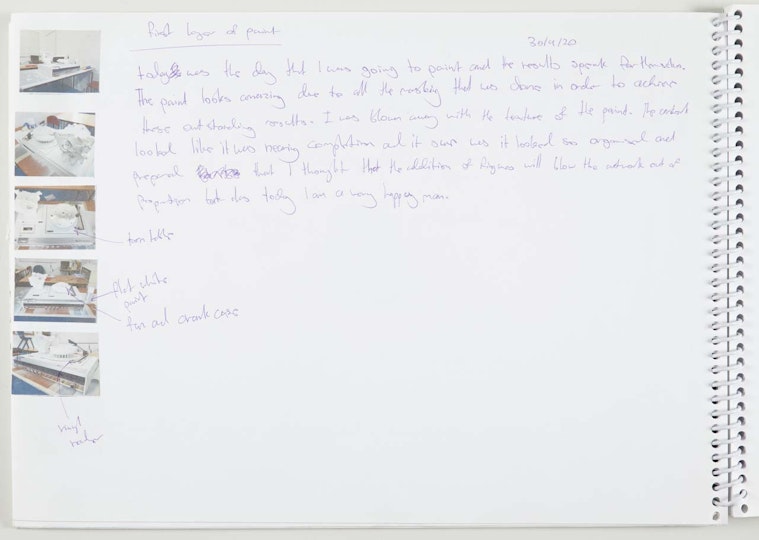 First layer of paint
30/9/20
today was the day that I was going to paint and the results speak for themselves.
The paint looks amazing due to all the masking that was done in order to achieve
these outstanding results. I was blown away with the texture of the paint. The
looked like it was nearing completion and it was it looked so organised and
prepared that I thought that the addition of figures will blow the artwork out of
proportion but today I am a very happy man.
turn table
flat white
paint
fan and crank case
vinyl